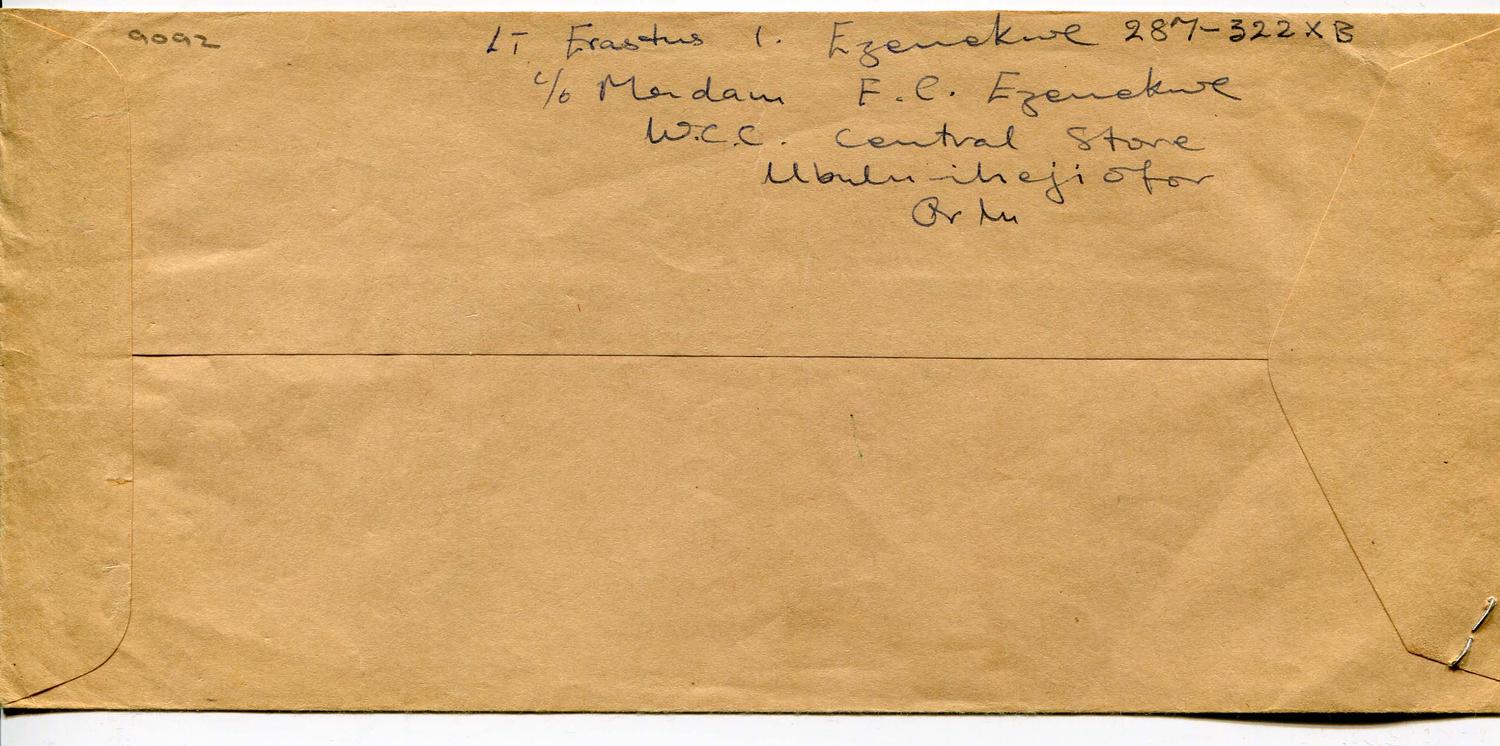 9092
LT Erastus I. Ezenekwe 287-322XB
c/o Mendam F.C. Ezenekwe
W.C.C. Central Store
Ubulu-iheji ofor
Orlu